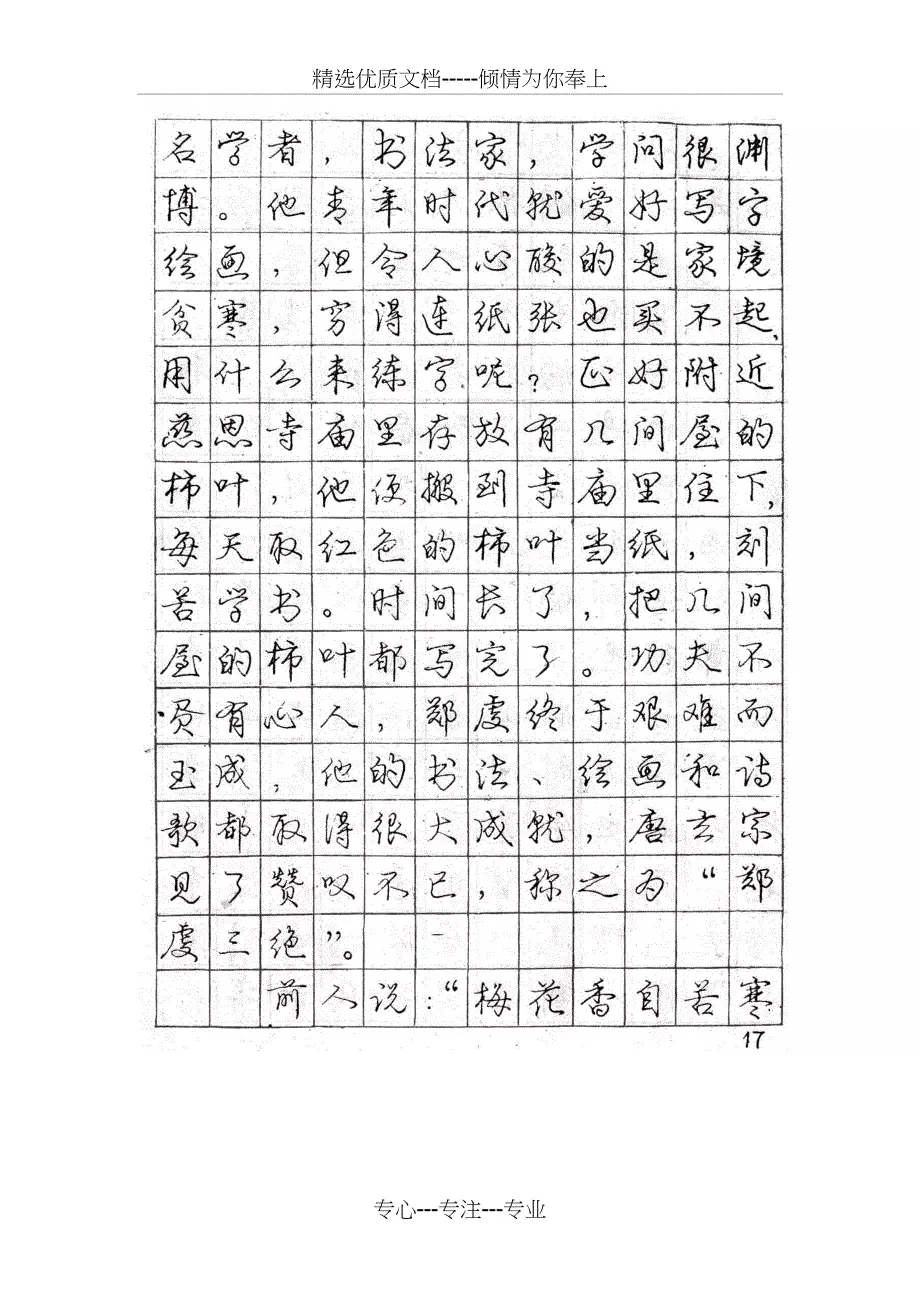 精选优质文档-----倾情为你奉上
名学者，书法家，学问很渊
博。他青年时代就爱好写字
绘画，但令人心酸的是家境
贫寒，穷得连纸张也买不起、
用什么来练字呢？正好附近
慈恩寺庙里存放有几间屋的
柿叶，他便搬到寺庙里住下，
每天取红色的柿叶当纸，刻
苦学书。时间长了，把几间
屋的柿叶都写完了。功夫不
负有心人，郑虔终于艰难而
玉成，他的书法、绘画和诗
歌都取得很大成就，唐玄宗
见了赞叹不已，称之为“郑
虔三绝”。
前人说：“梅花香自苦寒
17
专心---专注---专业